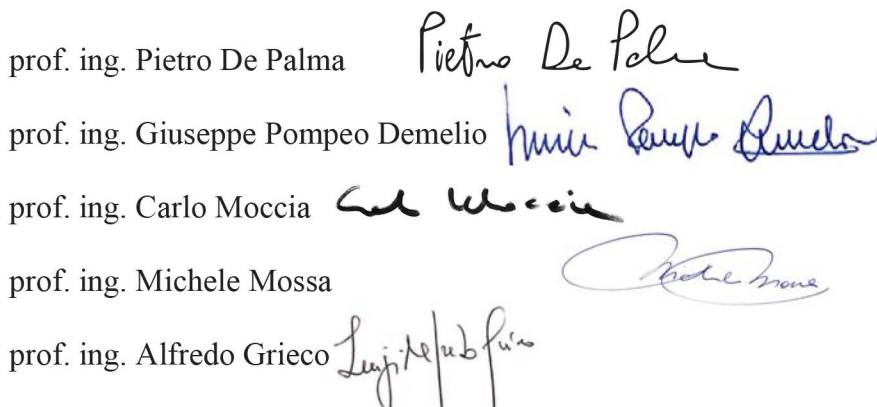 prof. ing. Pietro De Palma Pietro De Palma
prof. ing. Giuseppe Pompeo Demelio
prof. ing. Carlo Moccia Carlo Moccia
prof. ing. Michele Mossa Michele Mossa
prof. ing. Alfredo Grieco